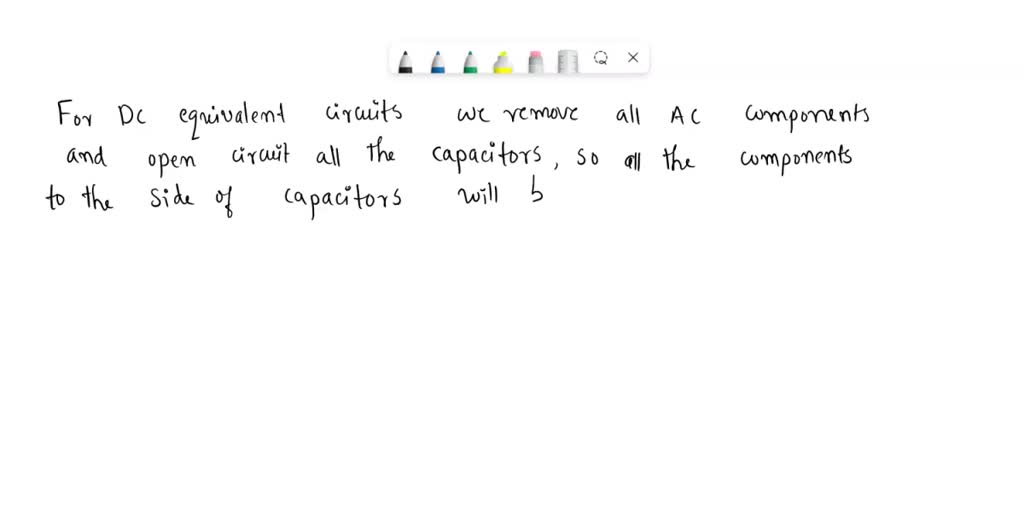 For DC equivalent circuits we remove all AC components
and open circuit all the capacitors, so all the components
to the side of capacitors will b